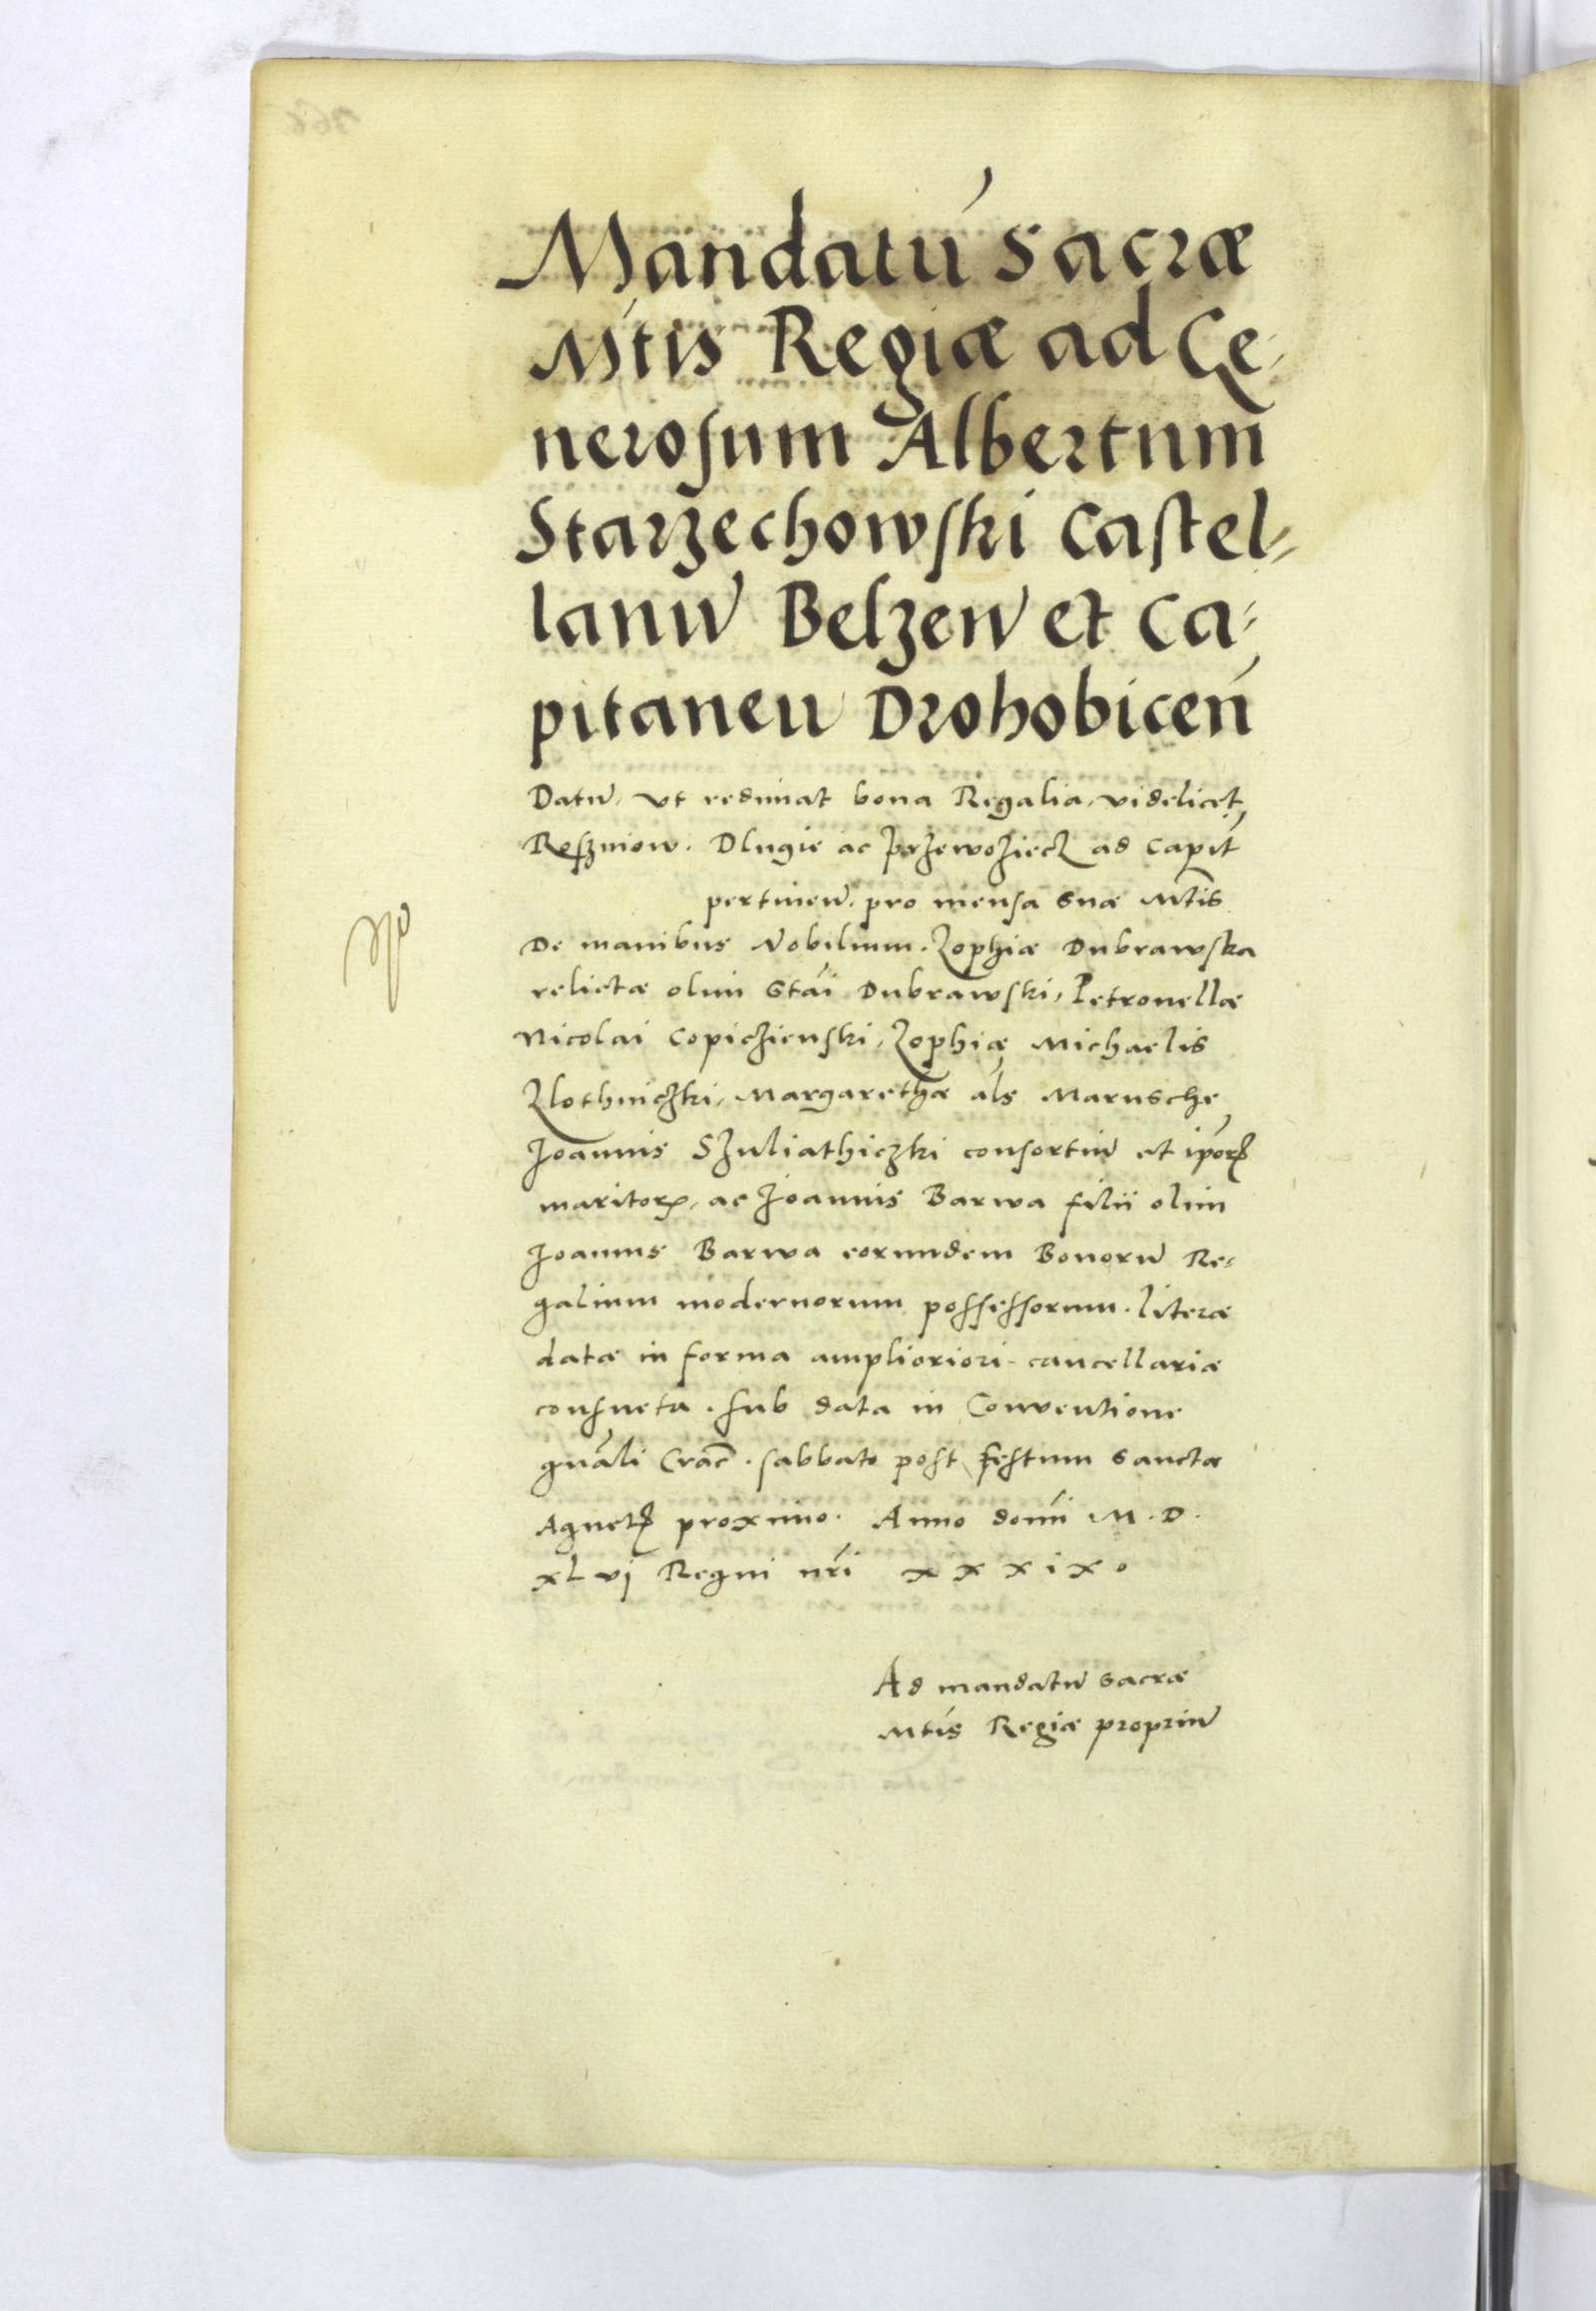 Mandatū Sacræ
Mtis Regiæ ad Ge-
nerosum Albertum
Starzechowski Castel-
lanū Belzeñ et Ca-
pitaneū Drohobiceñ
Datū, ut redimat bona Regalia, videlicet
Roszniow. Dlugie ac Przewoziecz ad Capit
pertineñ. pro mensa Suæ Mtis
De manibus Nobilium. Zophiæ Dubrawska
relictæ olim Stāi Dubrawski, Petronellæ
Nicolai Copiczienski, Zophiæ Michaelis
Zlothniczki, Margarethæ als Marusche
Joannis Szuliathiczki consortiū et ipōrꝝ
maritorꝝ, ac Joannis Barwa filii olim
Joannis Barwa eorundem Bonorū Re-
galium modernorum possessorum. literæ
datæ in forma amplioriori cancellariæ
consueta. sub data in Conventione
gnāli Crac̄. sabbato post festum Sanctæ
Agnetꝭ proximo. Anno domī M. D.
xLvj Regni nrī xxxix°
Ad mandatū Sacræ
Mtis Regiæ propriū